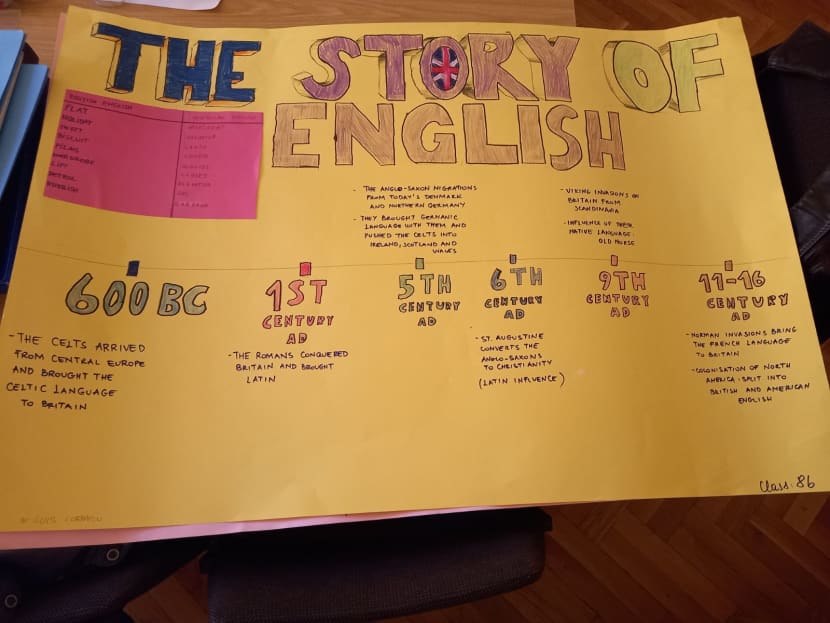 THE STORY OF
ENGLISH
BRITISH ENGLISH
FLAT
HOLIDAY
SWEET
BISCUIT
FILM
WARDROBE
LIFT
PETROL
RUBBISH
- THE ANGLO-SAXON MIGRATIONS
FROM TODAY'S DENMARK
AND NORTHERN GERMANY
- THEY BROUGHT GERMANIC
LANGUAGE WITH THEM AND
PUSHED THE CELTS INTO
IRELAND, SCOTLAND AND
WALES
- VIKING INVASIONS OF
BRITAIN FROM
SCANDINAVIA
- INFLUENCE OF THEIR
NATIVE LANGUAGE:
OLD NORSE
600 BC
- THE CELTS ARRIVED
FROM CENTRAL EUROPE
AND BROUGHT THE
CELTIC LANGUAGE
TO BRITAIN
1ST
CENTURY
AD
- THE ROMANS CONQUERED
BRITAIN AND BROUGHT
LATIN
5TH
CENTURY
AD
6TH
CENTURY
AD
- ST. AUGUSTINE
CONVERTS THE
ANGLO-SAXONS
TO CHRISTIANITY
(LATIN INFLUENCE)
9TH
CENTURY
AD
11-16
CENTURY
AD
- NORMAN INVASIONS BRING
THE FRENCH LANGUAGE
TO BRITAIN
- COLONISATION OF NORTH
AMERICA: SPLIT INTO
BRITISH AND AMERICAN
ENGLISH
Class: 86